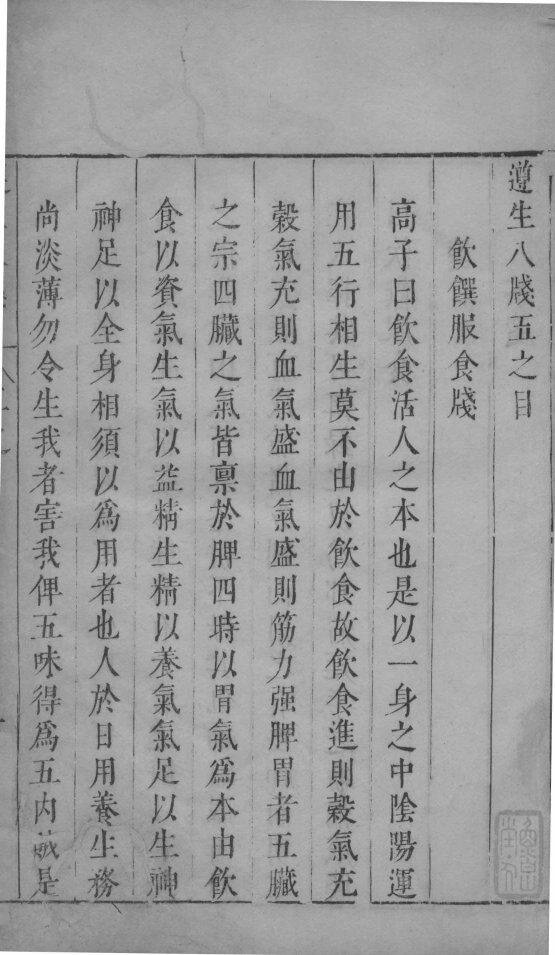 遵生八牋五之目
飲饌服食牋
高子曰飲食活人之本也是以一身之中陰陽運
用五行相生莫不由於飲食故飲食進則穀氣充
穀氣充則血氣盛血氣盛則筋力强脾胃者五臟
之宗四臟之氣皆禀於脾四時以胃氣爲本由飲
食以資氣生氣以益精生精以養氣氣足以生神
神足以全身相須以爲用者也人於日用養生務
尚淡薄勿令生我者害我俾五味得爲五内賊是